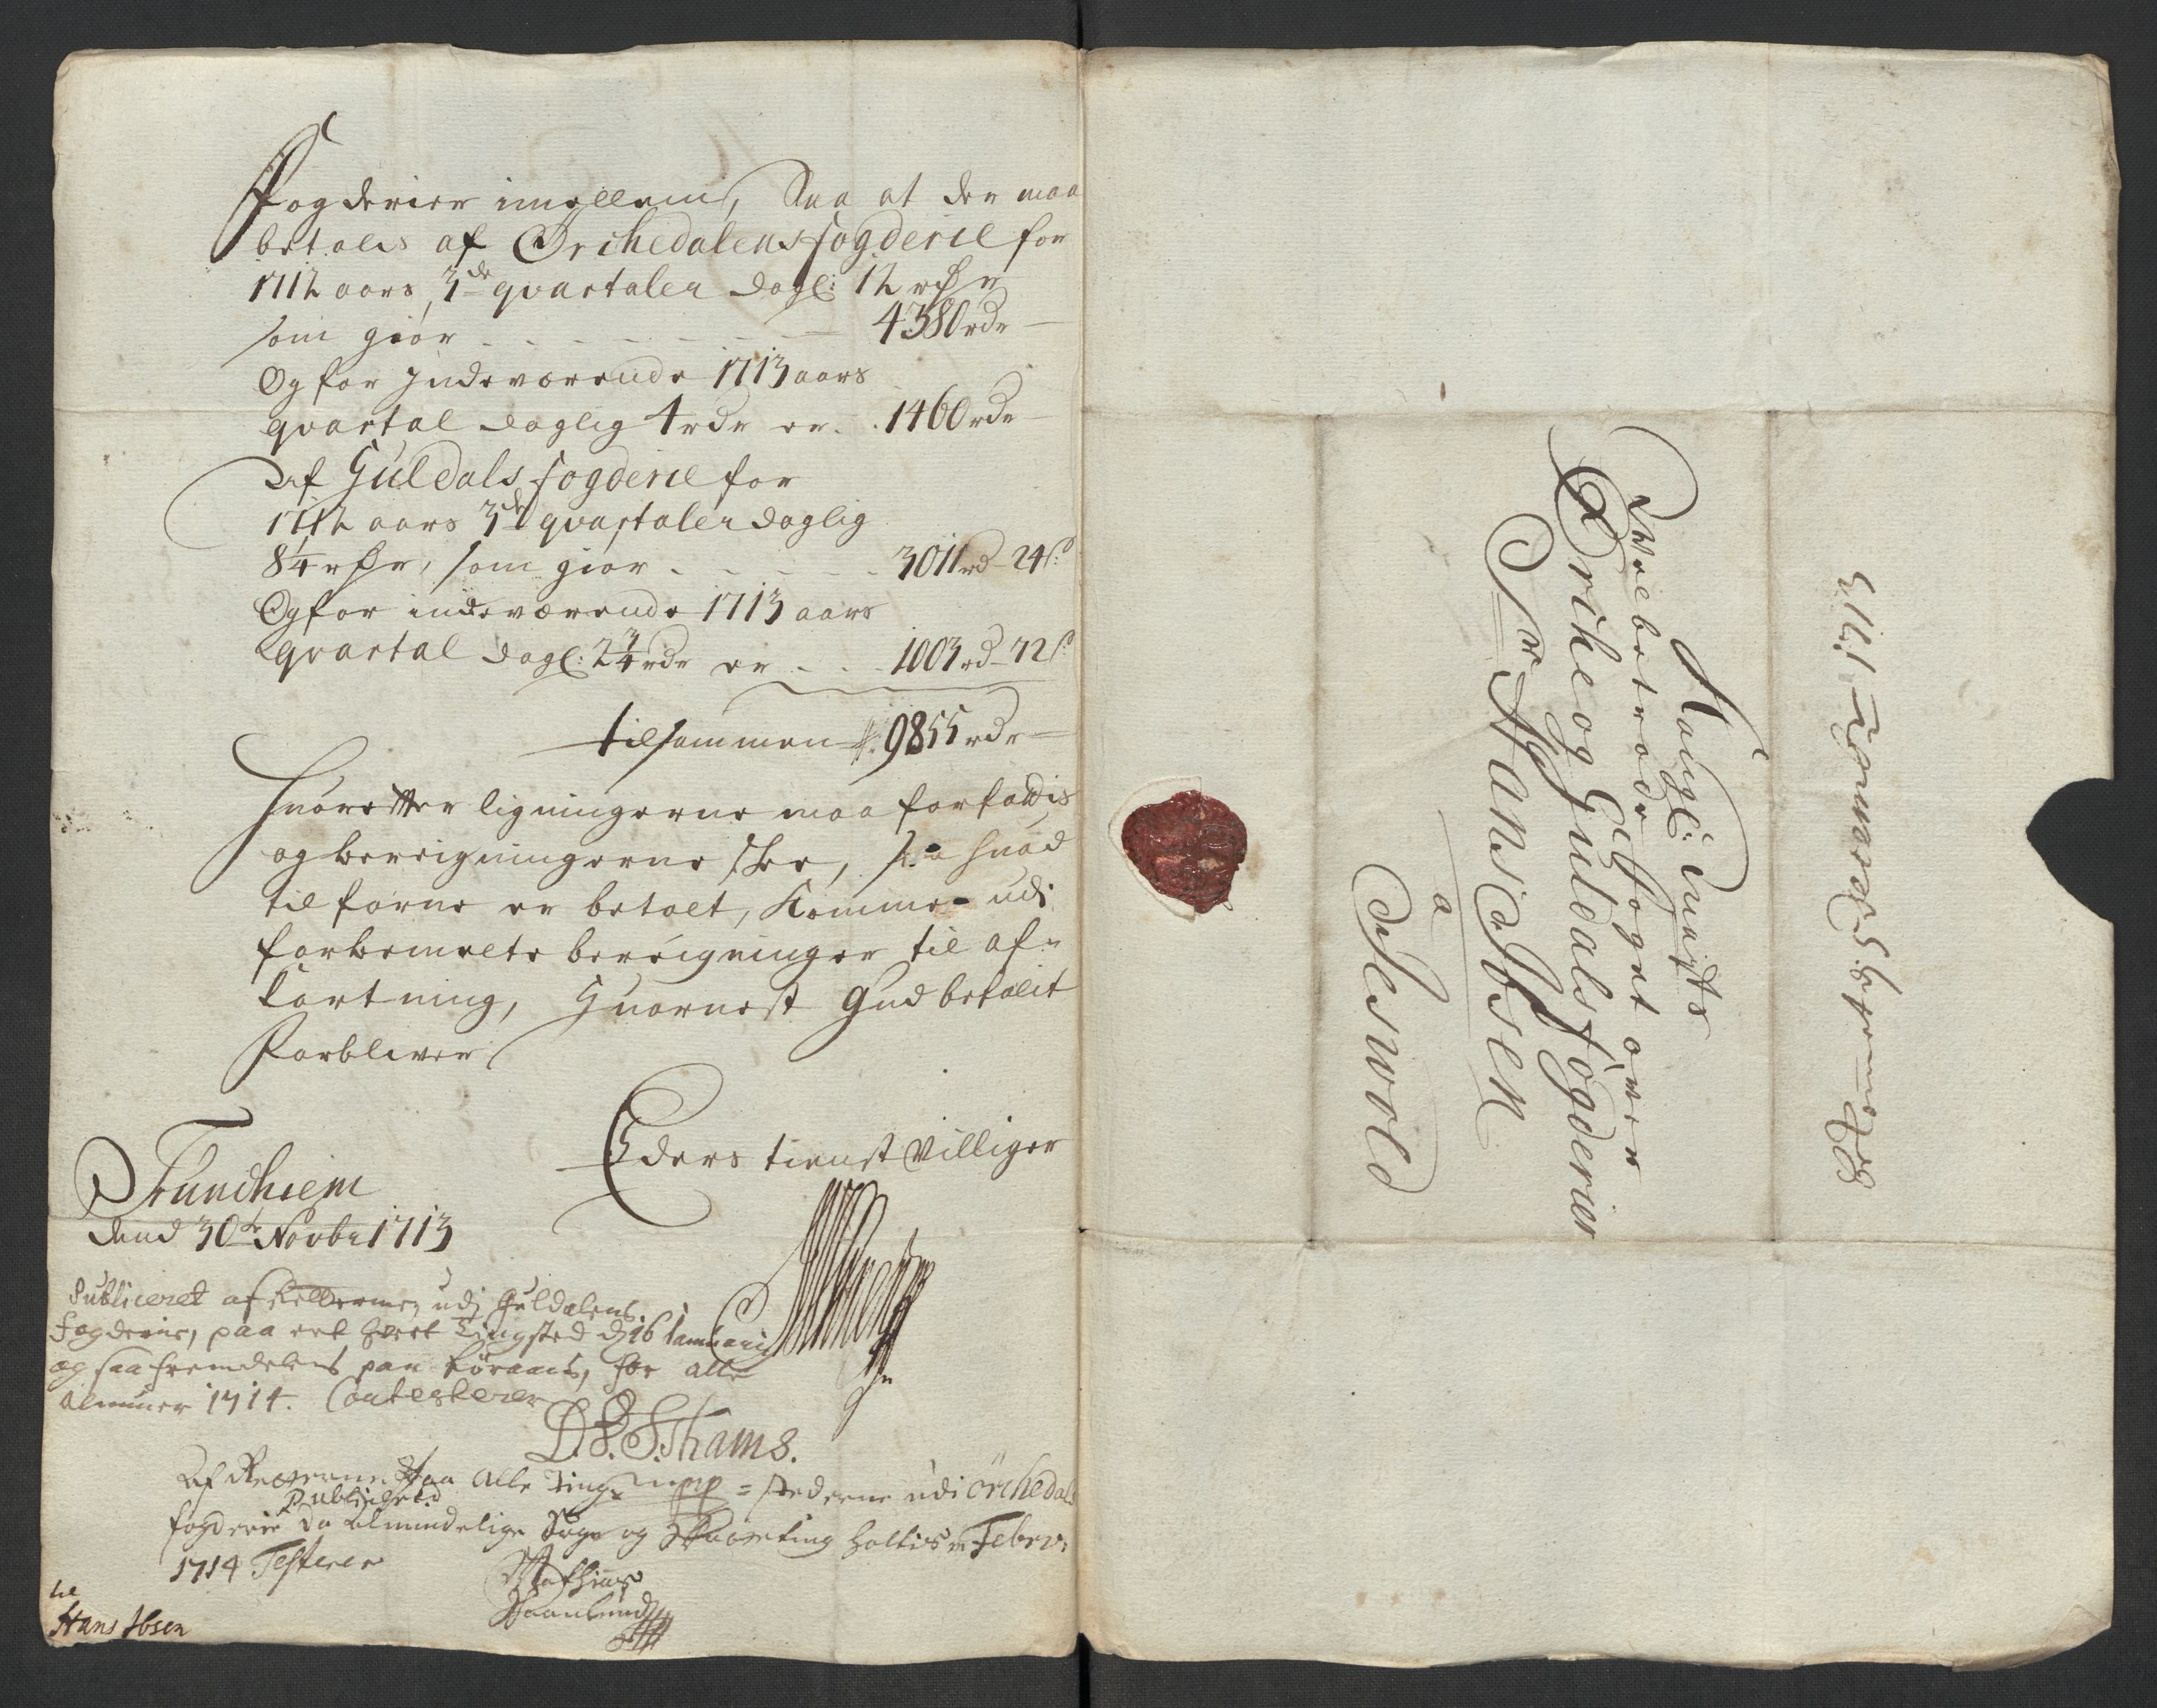 Fogderier imellem, Saa at der maa
betales af Örchedalens fogderie for
1712 aars 3de qvartaler dagl: 12 rdr
som giör 4380 rdr
Og for Indeværende 1713 aars
qvartal daglig 4 rdr er 1460 rdr
Af Guldals fogderie for
1712 aars 3de qvartaler daglig
8¼ rdr, som giör 3011 rd 24 s:
Og for indeværende 1713 aars
qvartal dagl: 2¾ rdr er 1003 rd 72 s:
tilsammen 9855 rdr
Huorefter ligningerne maa forfattis
og bereigningerne skee, saa huad
tilforne er betalt, Kommer udi
forbemelte bereigninger til af-
kortning, Huornest Gud befalet
Forbliver
Eders tienst Villiger
Trundhiem
dend 30te Novbr 1713
Publiceret af Retterne, udj Guldalens
Fogderie, paa ert hvert Tingsted d. 16 Januarij
og saa fremdelens paa Støraas, for alle
almuer 1714. Contesterer
D. F. Schams.
Af Retterne paa Alle Ting-stederne udi Örchedals
Publiceret
fogderie da Almindelige Sage og Skatteting holtis i Febrv:
1714 Testerer
Mathias
til
Hans Ibsen
Kongl: Maÿts
Velbetrode Foget over
Örche og Guldals fogderier
Sr Hans Ibsen
a
Lesvold
Bekommet d. 5 December 1713